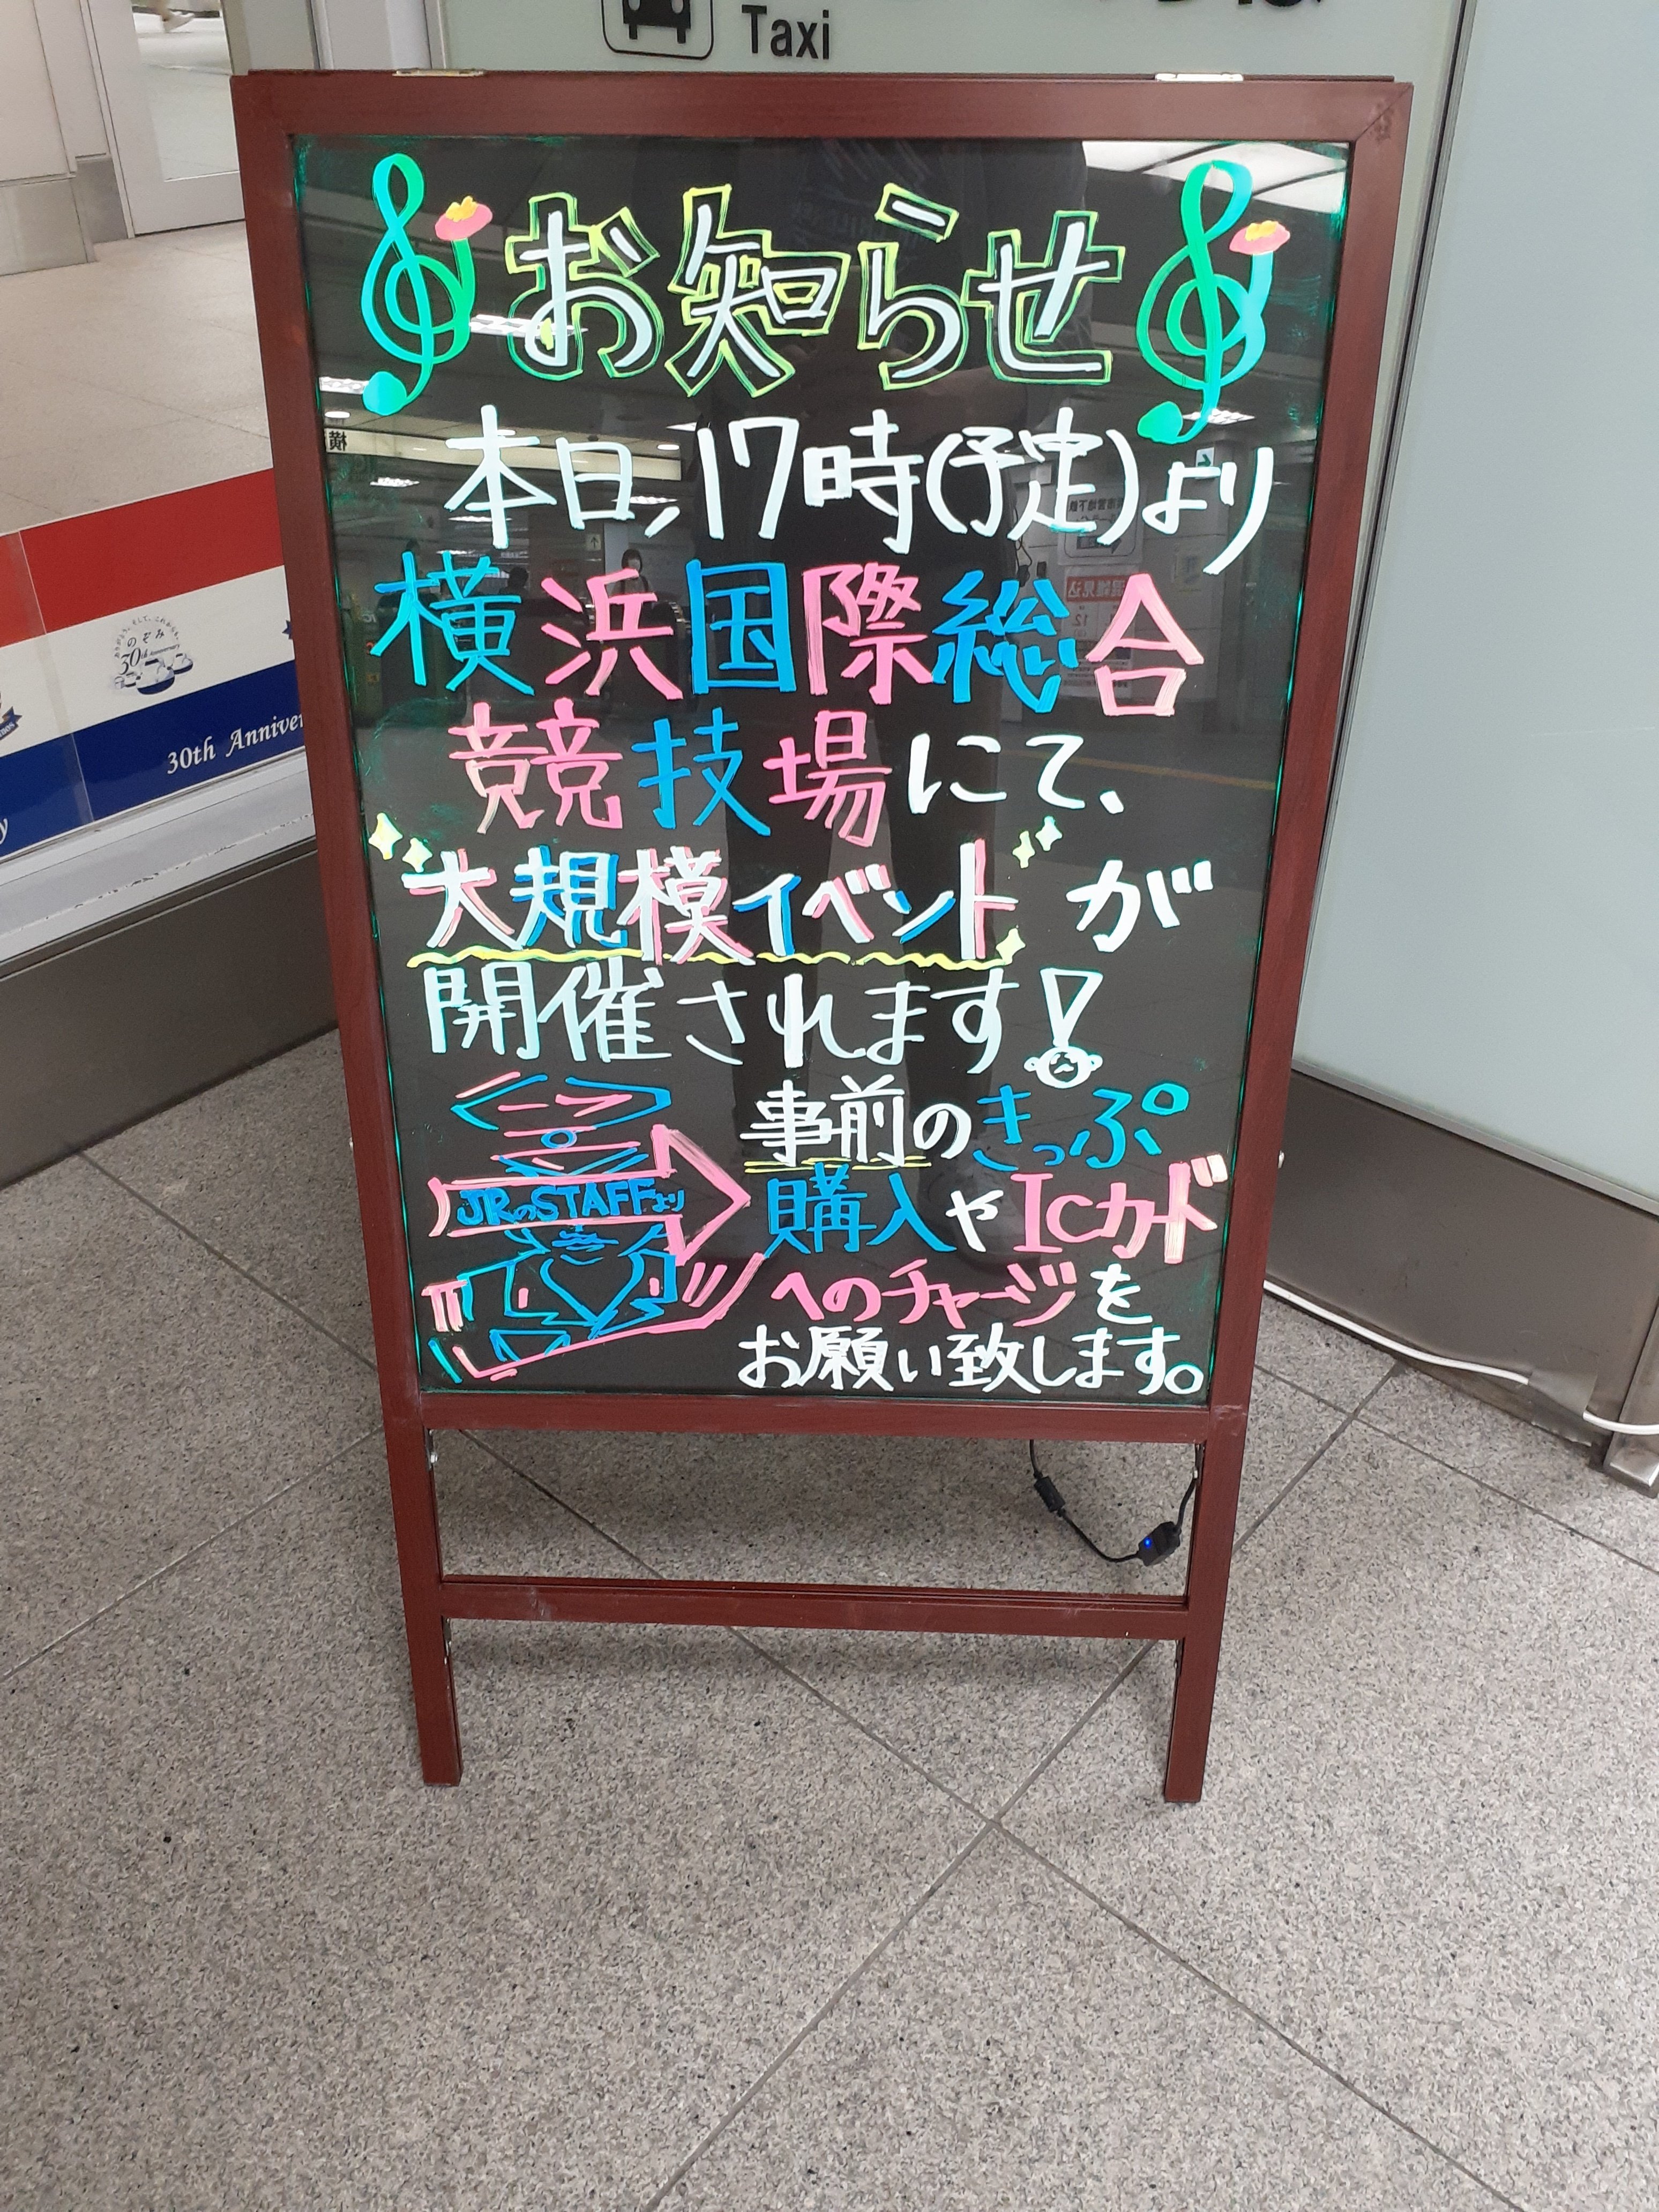 Taxi
お知らせ
本日,17時(予定)より
横浜国際総合
競技場にて、
大規模イベントが
開催されます!
事前のきっぷ
JRのSTAFFより
購入やICカード
へのチャージを
お願い致します。
のぞみ
30th Anniversary
30th Anniver
y